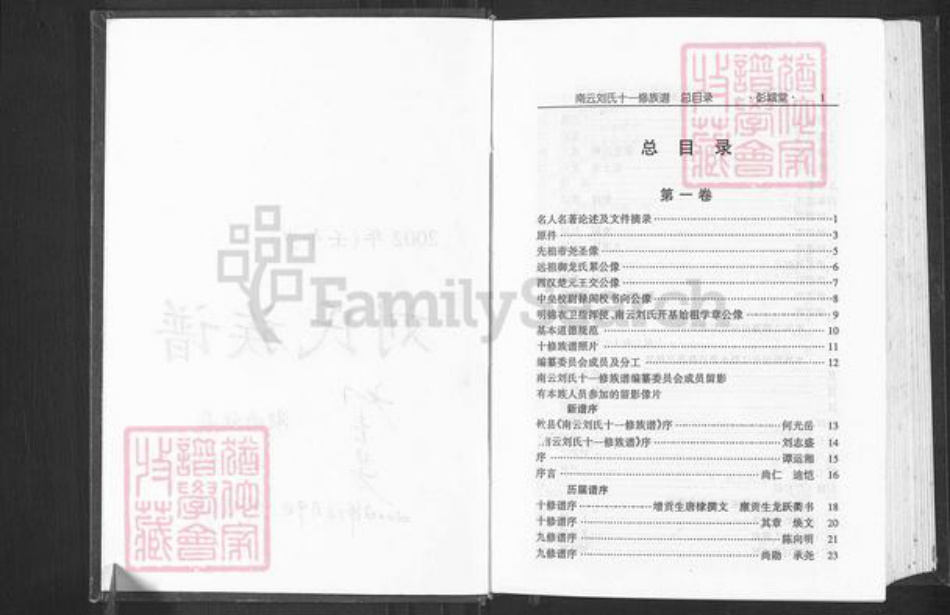 南云刘氏十一修族谱 总目录 ·彭城堂· 1
总 目 录
第一卷
名人名著论述及文件摘录 1
原件 3
先祖帝尧圣像 5
远祖御龙氏累公像 6
西汉楚元王交公像 7
中垒校尉禄阁校书向公像 8
明锦衣卫指挥使、南云刘氏开基始祖学章公像 9
基本道德规范 10
十修族谱照片 11
编纂委员会成员及分工 12
南云刘氏十一修族谱编纂委员会成员留影
有本族人员参加的留影像片
新谱序
攸县《南云刘氏十一修族谱》序 何光岳 13
云刘氏十一修族谱》序 刘志盛 14
序 谭运湘 15
序言 尚仁 迪恺 16
历届谱序
十修谱序 增贡生唐棣撰文 廪贡生龙跃衢书 18
十修谱序 其章 焕文 20
九修谱序 陈向明 21
九修谱序 尚勋 承尧 23
FamilySearch
刘氏族谱
2002年
譜學會
收藏